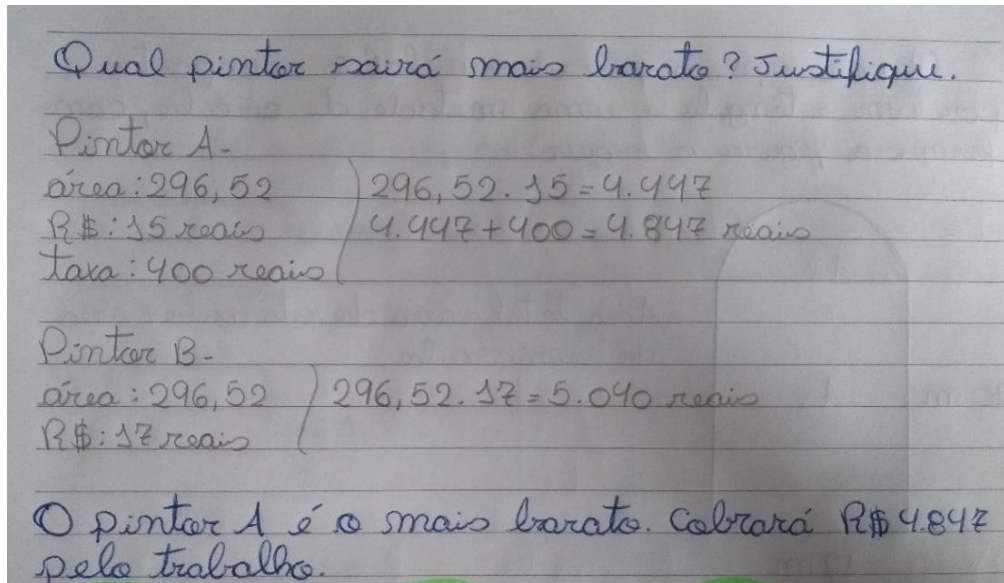 Qual pintor sairá mais barato? Justifique.
Pintor A-
área: 296,52
R$: 15 reais
taxa: 400 reais
296,52 . 15 = 4.447
4.447 + 400 = 4.847 reais
Pintor B-
área: 296,52
R$: 17 reais
296,52 . 17 = 5.040 reais
O pintor A é o mais barato. Cobrará R$ 4.847
pelo trabalho.